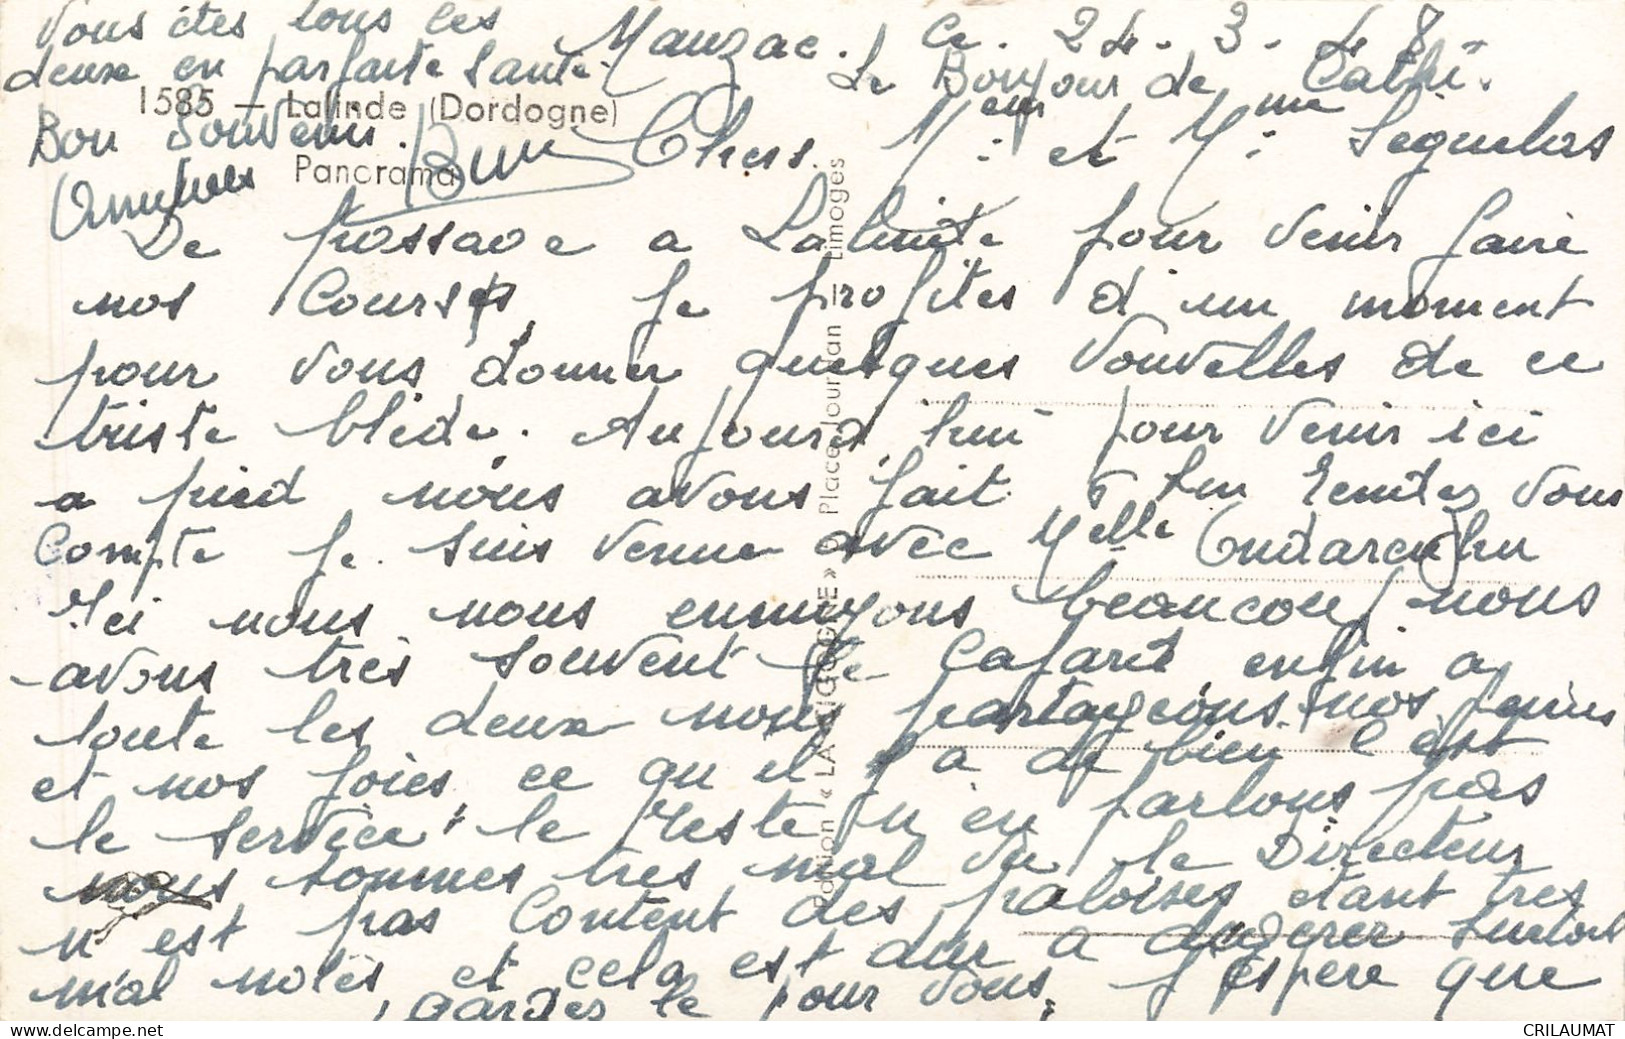 Mauzac. Ce. 24. 3. 48.
Le Bonjour de Cathi.
Chers. Meur et Mme
De passage a Lalinde pour venir faire
nos Courses, Je profites d'un moment
pour vous donner quelques nouvelles de ce
triste blède. Aujourd'hui pour venir ici
a pied nous avons fait 5 km rendez vous
Compte Je suis venue avec Melle
Ici nous nous ennuyons beaucoup nous
avons très souvent le Cafard enfin a
toute les deux nous partageons nos peines
et nos joies, ce qu il y a de bien c'est
le service, le reste n'en parlons pas
nous sommes très mal vu le Directeur
n'est pas Content des paloises étant très
mal notés et cela est dur a digérer surtout
gardes le pour vous, J'espère que
vous êtes tous les
deux en parfaite santé.
Bon Souvenir.
Amitiés
1585 — Lalinde (Dordogne)
Panorama
Edition « LA CIGOGNE » Place Jourdan — Limoges
CRILAUMAT